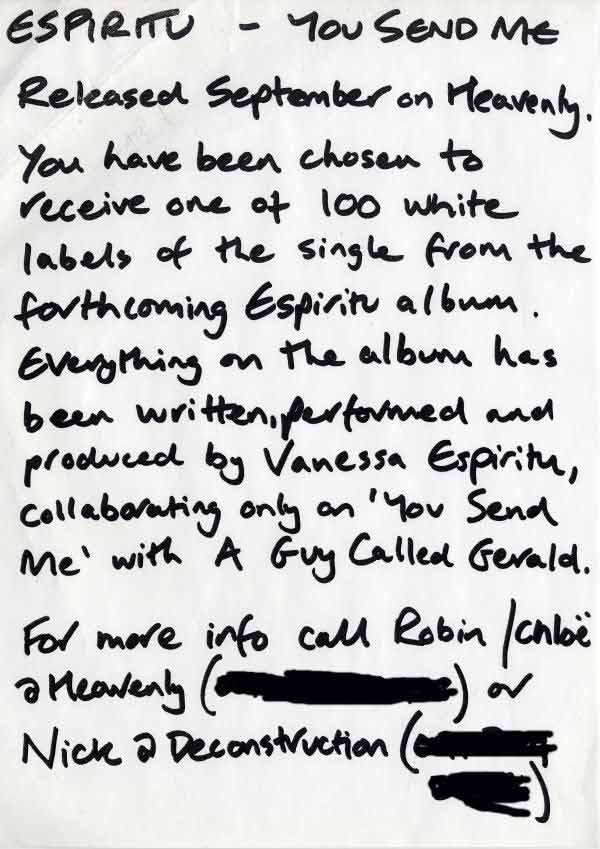 ESPIRITU - YOU SEND ME
Released September on Heavenly.
You have been chosen to
receive one of 100 white
labels of the single from the
forthcoming Espiritu album.
Everything on the album has
been written, performed and
produced by Vanessa Espiritu,
collaborating only on 'You Send
Me' with A Guy Called Gerald.
For more info call Robin / Chloë
@ Heavenly ( ) or
Nick @ Deconstruction (
)